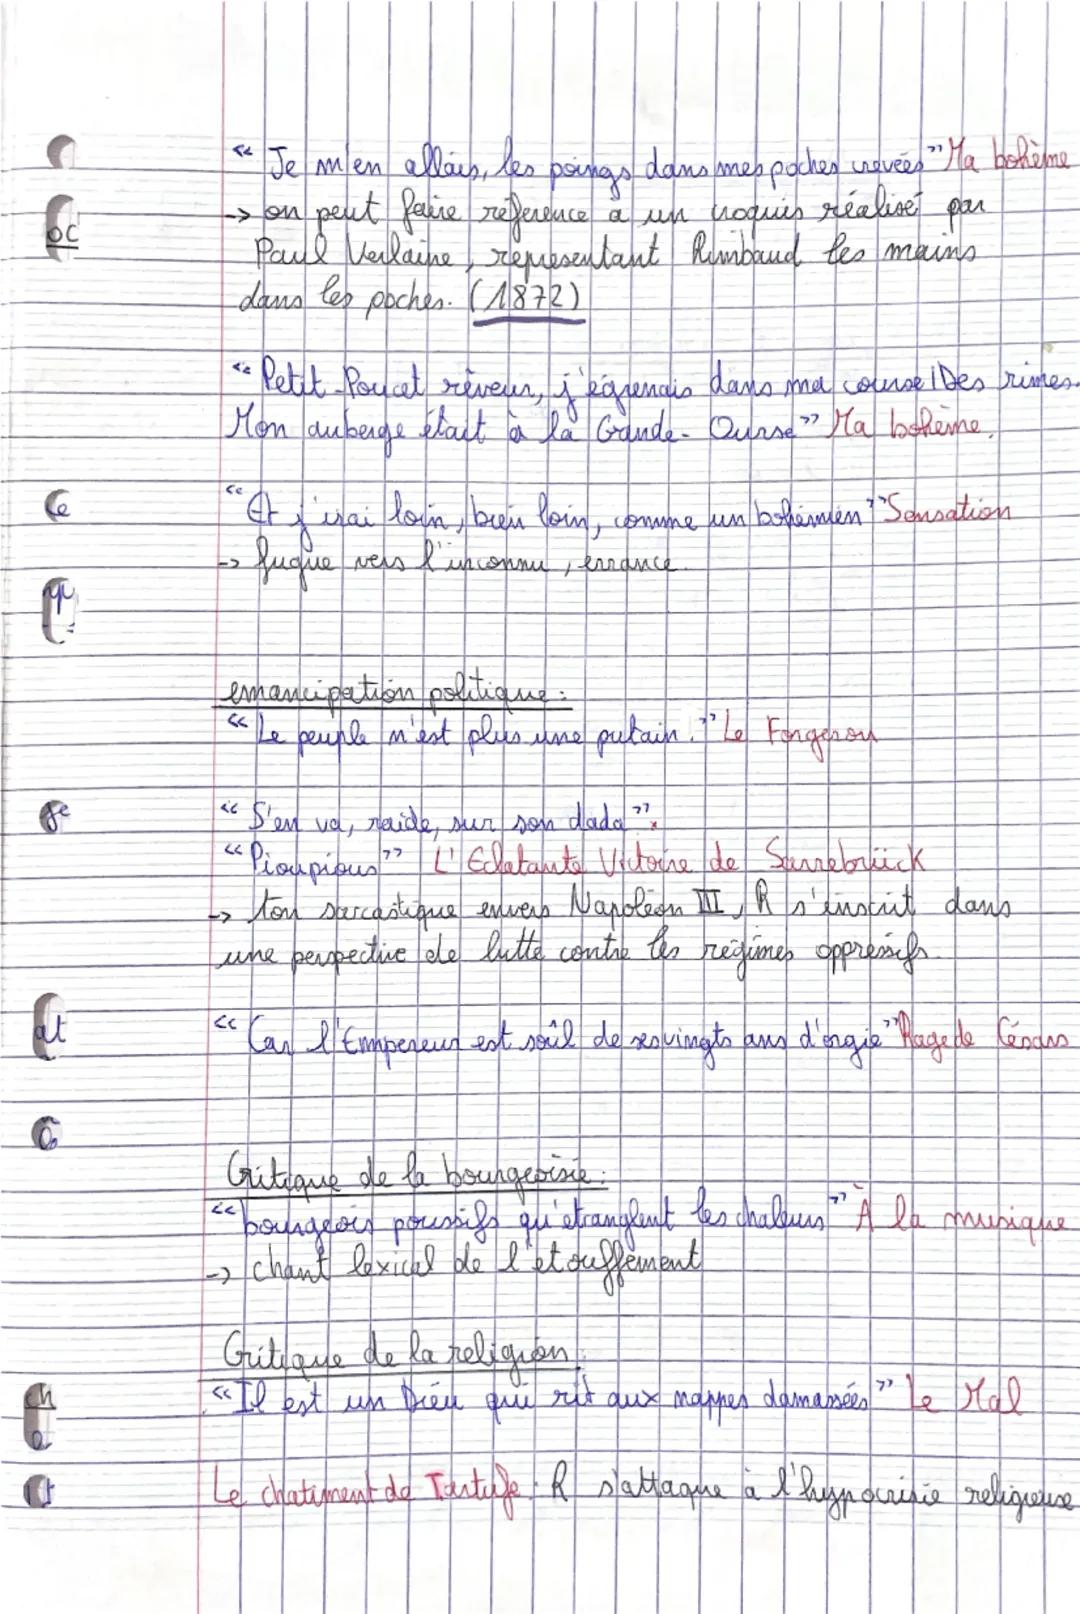 « Je m'en allais, les poings dans mes poches crevées » Ma bohème
-> on peut faire référence à un croquis réalisé par
Paul Verlaine, représentant Rimbaud les mains
dans les poches. (1872)
« Petit-Poucet rêveur, j'égrenais dans ma course / Des rimes.
Mon auberge était à la Grande-Ourse » Ma bohème.
« Et j'irai loin, bien loin, comme un bohémien » Sensation
-> fugue vers l'inconnu, errance.
émancipation politique :
« Le peuple n'est plus une putain. » Le Forgeron
« S'en va, raide, sur son dada ».
« Pioupious » L'Eclatante Victoire de Sarrebrück
-> ton sarcastique envers Napoléon III, R s'inscrit dans
une perspective de lutte contre les régimes oppressifs.
« Car l'Empereur est soûl de ses vingts ans d'orgie » Rage de Césars
Critique de la bourgeoisie :
« bourgeois poussifs qu'étranglent les chaleurs » À la musique
-> chant lexical de l'étouffement
Critique de la religion :
« Il est un Dieu qui rit aux nappes damassées » Le Mal
Le chatiment de Tartufe : R s'attaque à l'hypocrisie religieuse
oc
ce
qu
ge
at
ch